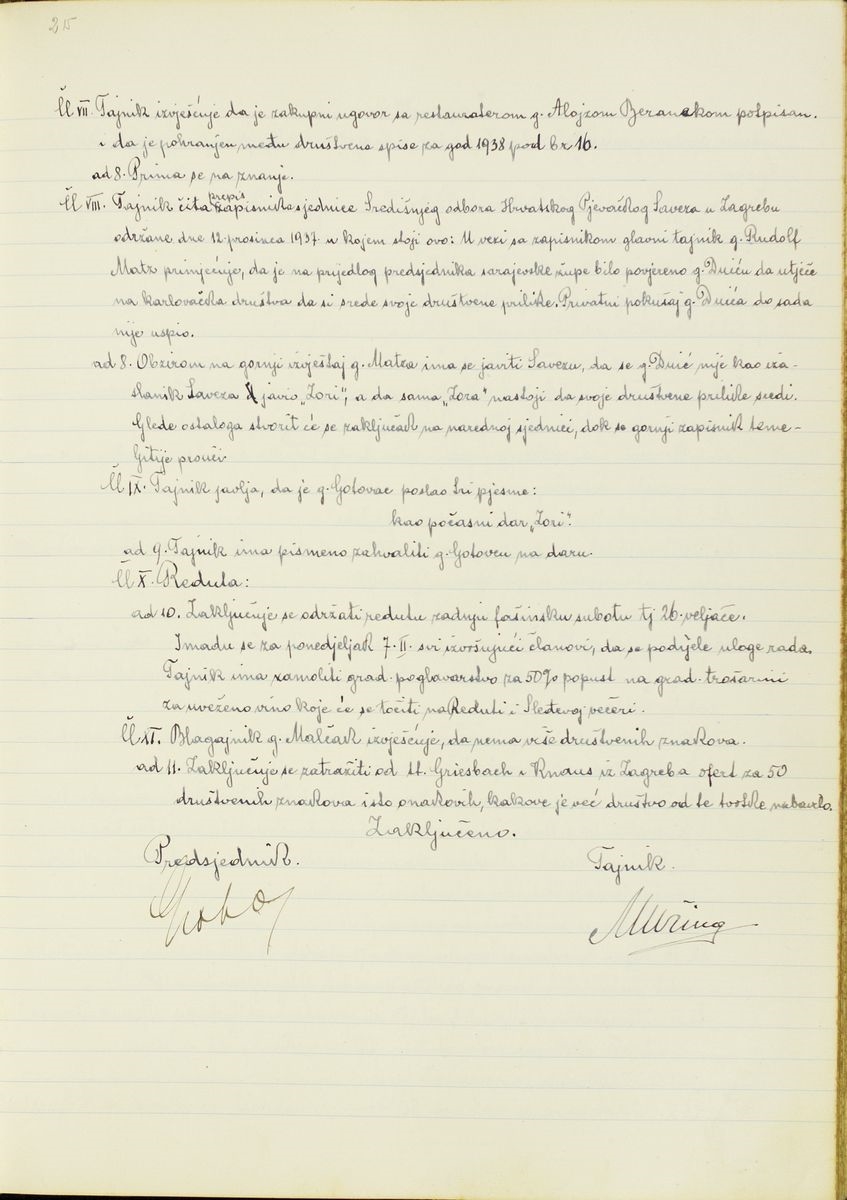 25
Čl VII. Tajnik izvješćuje da je zakupni ugovor sa restauraterom g. Alojzom Beranekom potpisan.
i da je pohranjen među društvene spise za god 1938 pod br 16.
ad 8. Prima se na znanje.
prepis
Čl VIII. Tajnik čita zapisnika sjednice Središnjeg odbora Hrvatskog Pjevačkog Saveza u Zagrebu
održane dne 12. prosinca 1937. u kojem stoji ovo: U vezi sa zapisnikom glavni tajnik g. Rudolf
Matz primjećuje, da je na prijedlog predsjednika sarajevske župe bilo povjereno g. Duiću da utječe
na karlovačka društva da si srede svoje društvene prilike. Privatni pokušaj g. Duića do sada
nije uspio.
ad 8. Obzirom na gornji izvještaj g. Matza ima se javiti Savezu, da se g. Duić nije kao iza-
slanik Saveza javio „Zori", a da sama „Zora" nastoji da svoje društvene prilike sredi.
Glede ostaloga stvorit će se zaključak na narednoj sjednici, dok se gornji zapisnik teme-
ljitije prouči.
Čl IX. Tajnik javlja, da je g. Gotovac poslao tri pjesme:
kao počasni dar „Zori".
ad 9. Tajnik ima pismeno zahvaliti g. Gotovcu na daru.
Čl X. Reduta:
ad 10. Zaključuje se održati redutu zadnju fašinsku subotu tj 26. veljače.
Imadu se za ponedjeljak 7. II. svi izvršujući članovi, da se podijele uloge rada.
Tajnik ima zamoliti grad. poglavarstvo za 50% popust na grad. trošarini
za uveženo vino koje će se točiti na Reduti i Sleđevoj večeri.
Čl XI. Blagajnik g. Malčak izvješćuje, da nema više društvenih znakova.
ad 11. Zaključuje se zatražiti od tt. Griesbach i Knaus iz Zagreba ofert za 50
društvenih znakova isto onakovih, kakove je već društvo od te tvrtke nabavilo.
Zaključeno.
Predsjednik. Tajnik.